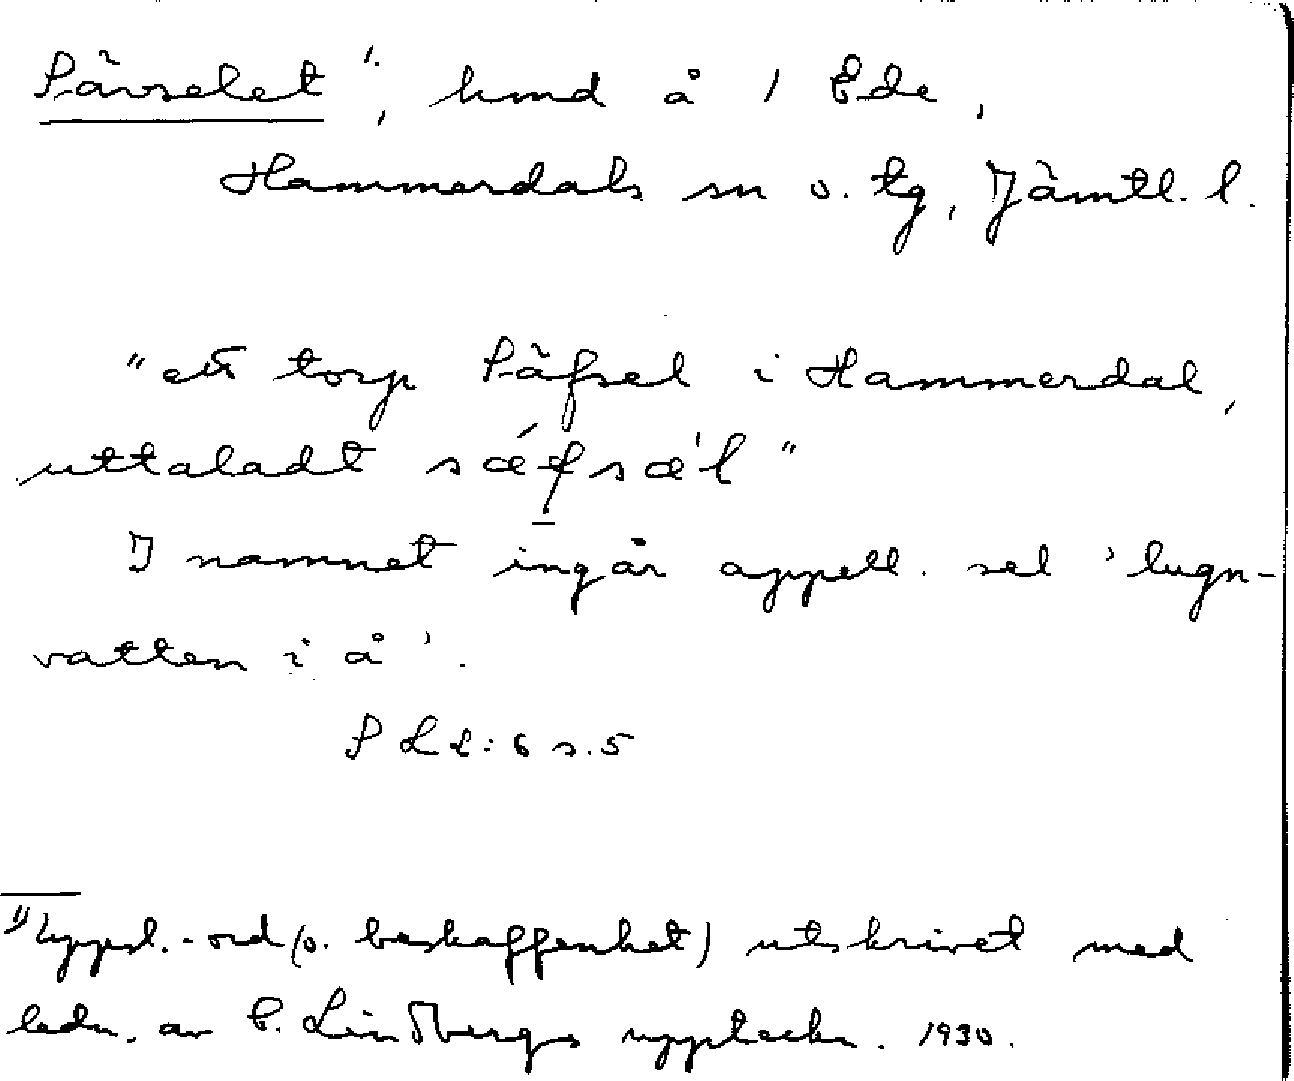 Sävselet ¹⁾, hmd å 1 Ede,
Hammerdals sn o. tg, Jämtl. l.
"ett torp Säfsel i Hammerdal,
uttaladt sǽfsæ'l"
I namnet ingår appell. sel 'lugn-
vatten i å'.
S L2:6 s.5
¹⁾ Uppsl.-ord (o. beskaffenhet) utskrivet med
ledn. av C. Lindbergs uppteckn. 1930.